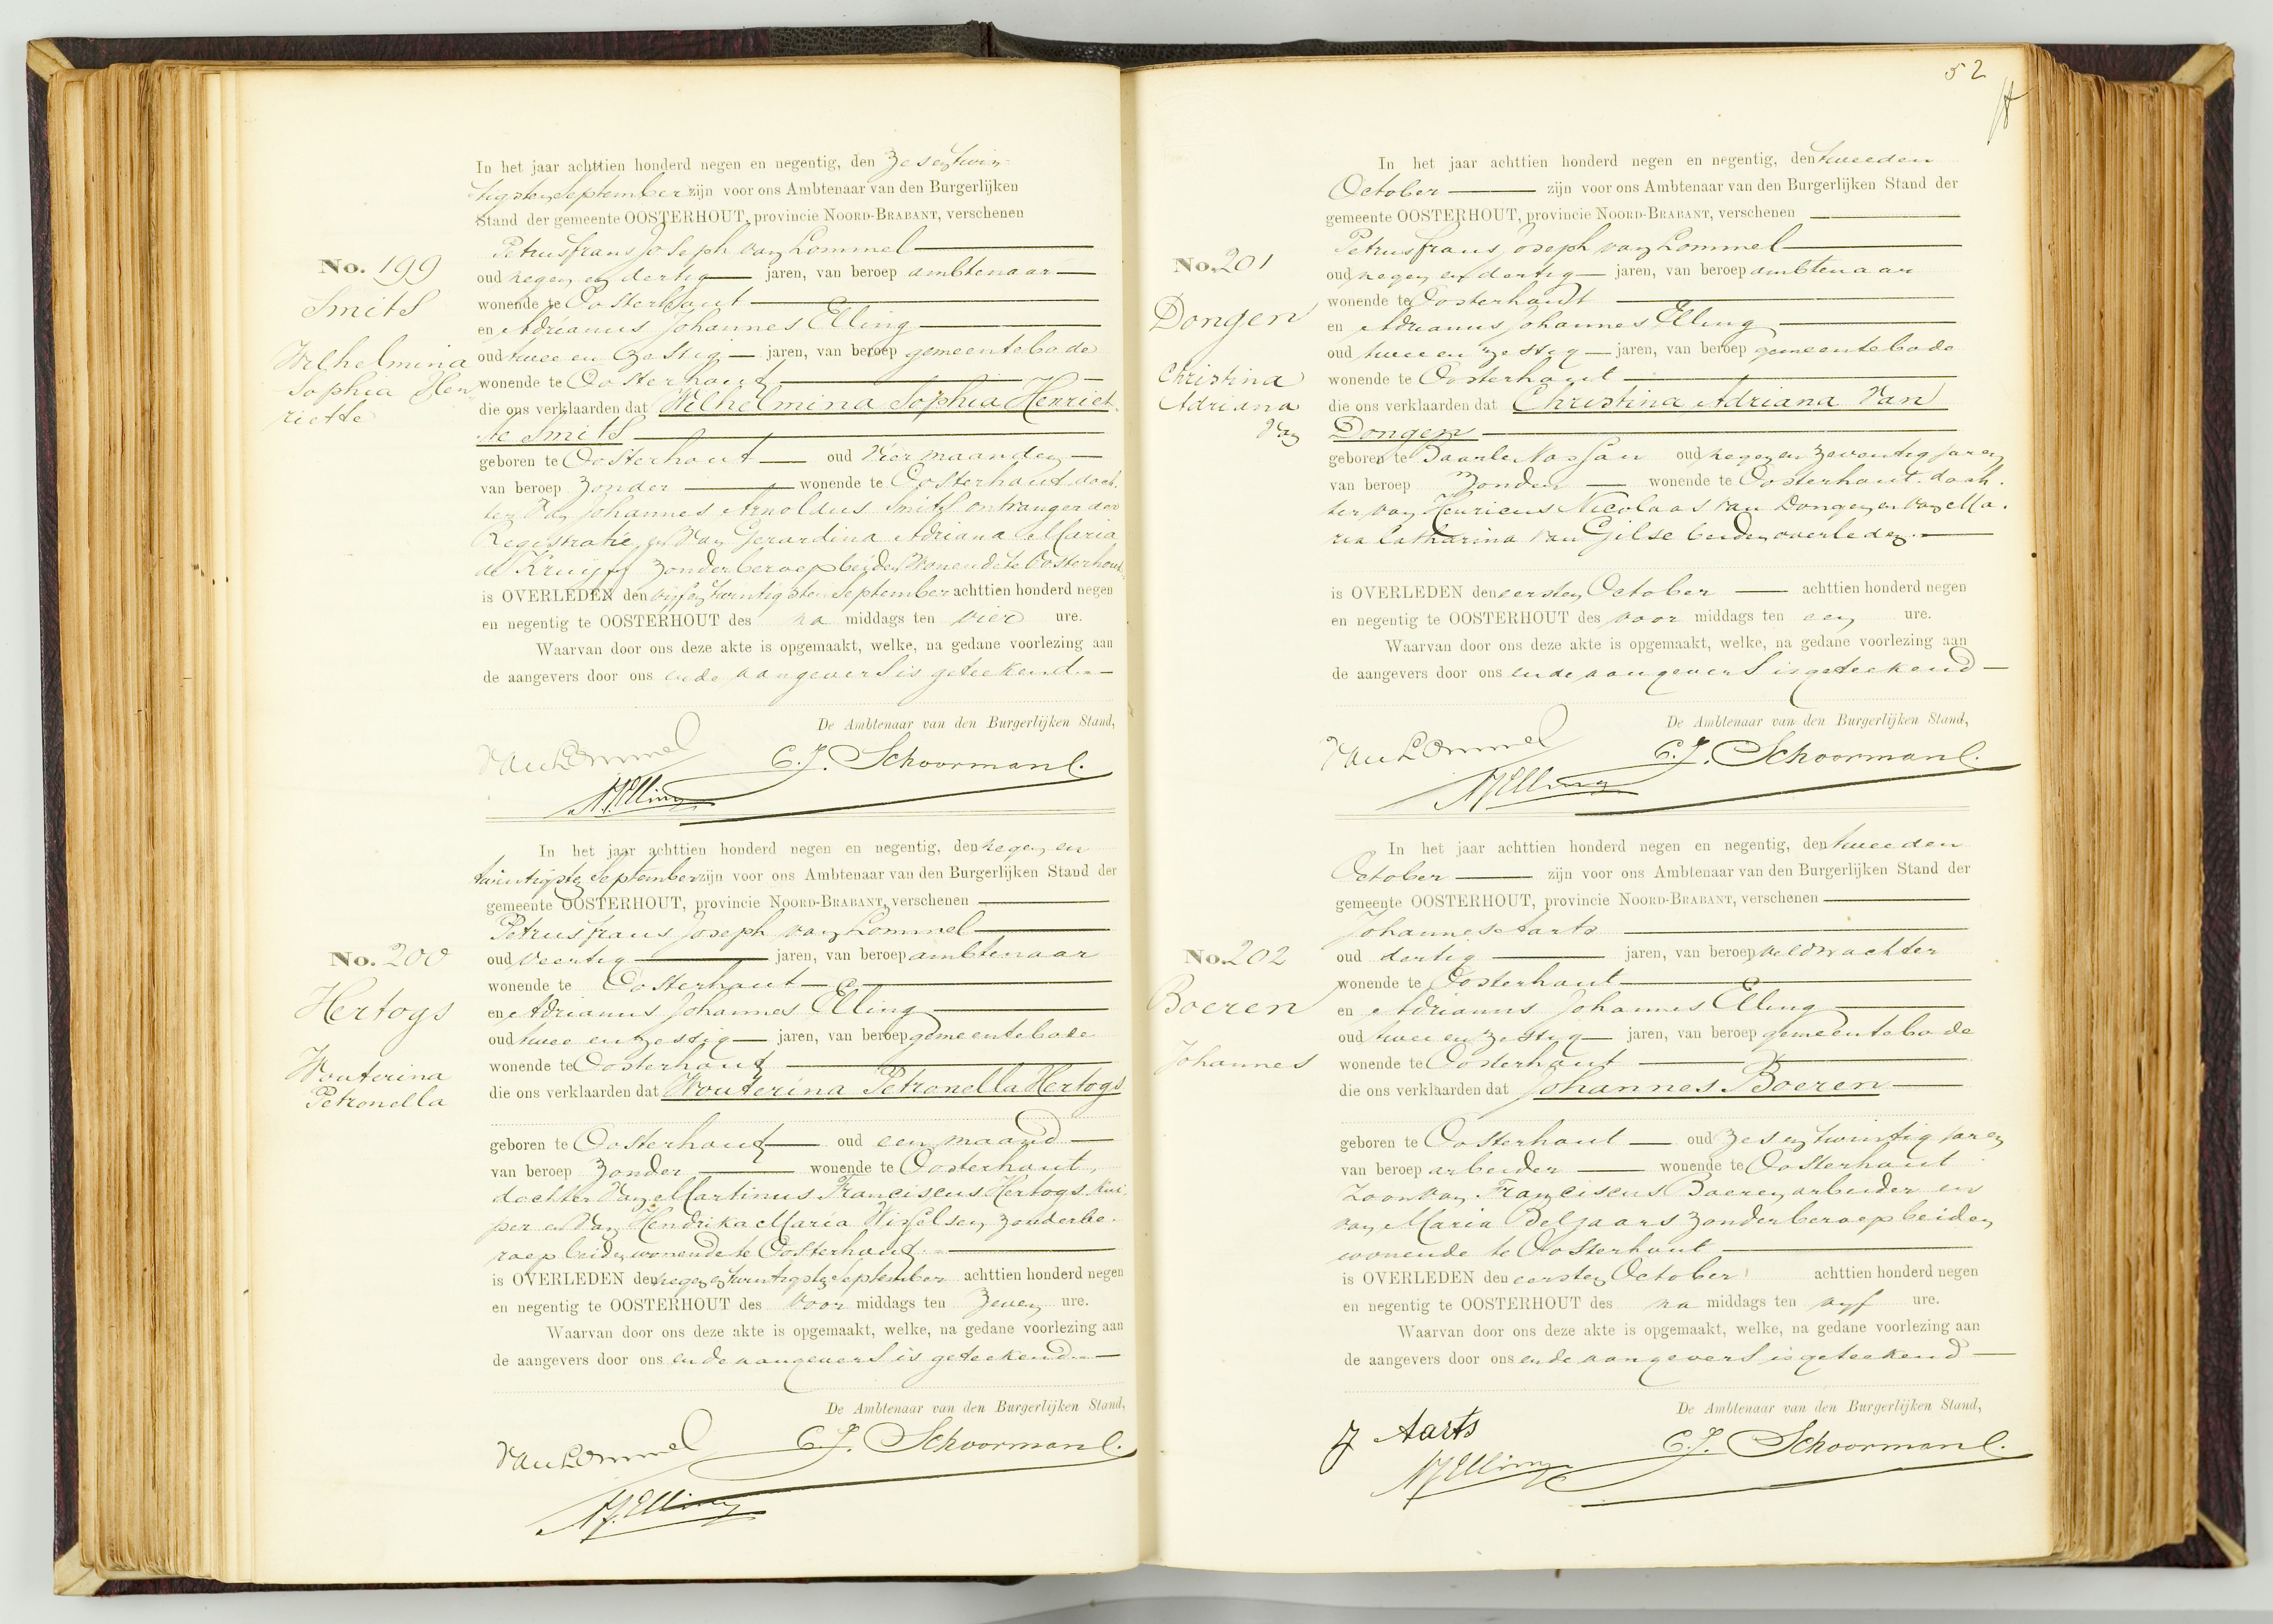 In het jaar achttien honderd negen en negentig, den zesentwin-
tigsten September zijn voor ons Ambtenaar van den Burgerlijken
Stand der gemeente OOSTERHOUT, provincie NOORD-BRABANT, verschenen
Petrus frans Joseph van Lommel
No. 199
oud negen en dertig jaren, van beroep ambtenaar
Smits
wonende te Oosterhout
en Adrianus Johannes Elling
Wilhelmina
oud twee en zestig jaren, van beroep gemeentebode
Sophia Hen
wonende te Oosterhout
riette
die ons verklaarden dat Wilhelmina Sophia Henriet-
te Smits
geboren te Oosterhout oud vier maanden
van beroep zonder wonende te Oosterhout doch-
ter van Johannes Arnoldus Smits ontvanger der
Registratie en van Gerardina Adriana Maria
de Kruijff zonder beroep beiden wonende te Oosterhout
is OVERLEDEN den vijfentwintigsten September achttien honderd negen
en negentig te OOSTERHOUT des na middags ten vier ure.
Waarvan door ons deze akte is opgemaakt, welke, na gedane voorlezing aan
de aangevers door ons en de aangevers is geteekend.
De Ambtenaar van den Burgerlijken Stand,
van Lommel C. J. Schoormans.
AJElling
In het jaar achttien honderd negen en negentig, den negen en
twintigsten September zijn voor ons Ambtenaar van den Burgerlijken Stand der
gemeente OOSTERHOUT, provincie NOORD-BRABANT, verschenen
Petrus frans Joseph van Lommel
No. 200
oud veertig jaren, van beroep ambtenaar
wonende te Oosterhout
Hertogs
en Adrianus Johannes Elling
oud twee en zestig jaren, van beroep gemeentebode
Wouterina
wonende te Oosterhout
Petronella
die ons verklaarden dat Wouterina Petronella Hertogs
geboren te Oosterhout oud een maand
van beroep zonder wonende te Oosterhout,
dochter van Martinus Franciscus Hertogs kui-
per en van Hendrika Maria Wisselsen zonder be-
roep beiden wonende te Oosterhout
is OVERLEDEN den negen en twintigsten September achttien honderd negen
en negentig te OOSTERHOUT des voor middags ten zeven ure.
Waarvan door ons deze akte is opgemaakt, welke, na gedane voorlezing aan
de aangevers door ons en de aangevers is geteekend.
De Ambtenaar van den Burgerlijken Stand,
van Lommel C. J. Schoormans.
AJElling
52
In het jaar achttien honderd negen en negentig, den tweeden
October zijn voor ons Ambtenaar van den Burgerlijken Stand der
gemeente OOSTERHOUT, provincie NOORD-BRABANT, verschenen
Petrus frans Joseph van Lommel
No. 201
oud negen en dertig jaren, van beroep ambtenaar
wonende te Oosterhout
Dongen
en Adrianus Johannes Elling
oud twee en zestig jaren, van beroep gemeentebode
Christina
wonende te Oosterhout
Adriana
die ons verklaarden dat Christina Adriana van
van
Dongen
geboren te Baarle Nassau oud negen en zeventig jaren
van beroep zonder wonende te Oosterhout doch-
ter van Henricus Nicolaas van Dongen en van Ma-
ria Catharina van Gilse beiden overleden.
is OVERLEDEN den eersten October achttien honderd negen
en negentig te OOSTERHOUT des voor middags ten een ure.
Waarvan door ons deze akte is opgemaakt, welke, na gedane voorlezing aan
de aangevers door ons en de aangevers is geteekend
De Ambtenaar van den Burgerlijken Stand,
van Lommel C. J. Schoormans.
AJElling
In het jaar achttien honderd negen en negentig, den tweeden
October zijn voor ons Ambtenaar van den Burgerlijken Stand der
gemeente OOSTERHOUT, provincie NOORD-BRABANT, verschenen
Johannes Aarts
No. 202
oud dertig jaren, van beroep veldwachter
wonende te Oosterhout
Boeren
en Adrianus Johannes Elling
oud twee en zestig jaren, van beroep gemeentebode
Johannes
wonende te Oosterhout
die ons verklaarden dat Johannes Boeren
geboren te Oosterhout oud zes en twintig jaren
van beroep arbeider wonende te Oosterhout
zoon van Franciscus Boeren arbeider en
van Maria Beljaars zonder beroep beiden
wonende te Oosterhout
is OVERLEDEN den eersten October achttien honderd negen
en negentig te OOSTERHOUT des na middags ten vyf ure.
Waarvan door ons deze akte is opgemaakt, welke, na gedane voorlezing aan
de aangevers door ons en de aangevers is geteekend
De Ambtenaar van den Burgerlijken Stand,
J Aarts C. J. Schoormans.
AJElling